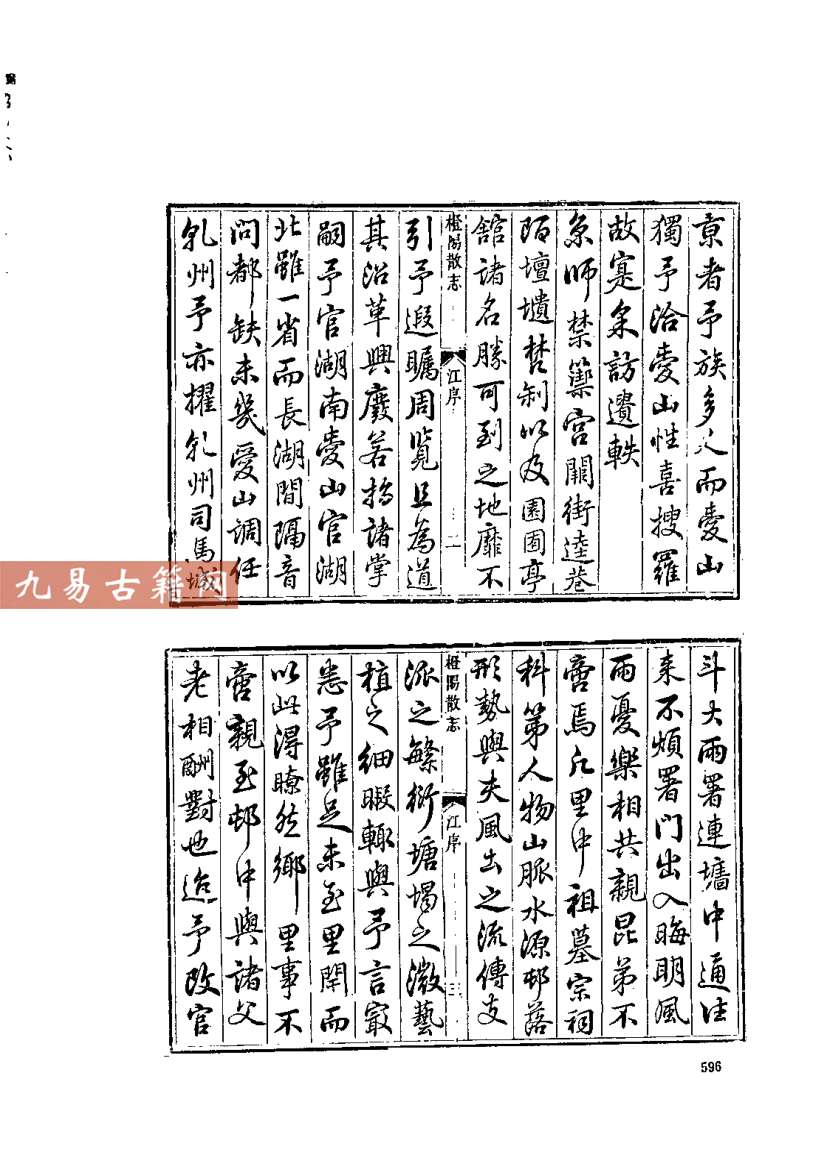 京者予族多人而愛山
獨予洽愛山性喜搜羅
故寔采訪遺軼
京師禁籞宮闕街逵巷
陌壇壝營制以及園囿亭
舘諸名勝可到之地靡不
橙陽散志
江序
二
引予遐矚周覽且為道
其沿革興廢若指諸掌
嗣予官湖南愛山官湖
北雖一省而長湖間隔音
問都缺未幾愛山調任
乹州予亦擢乹州司馬城
九易古籍网
斗大兩署連墻中通往
来不煩署門出入晦明風
雨憂樂相共親昆弟不
啻焉凡里中祖墓宗祠
科第人物山脉水源邨落
形勢與夫風土之流傳支
橙陽散志
江序
三
派之繁衍塘堨之濬藝
植之細暇輙與予言最
悉予雖足未至里閈而
以此得瞭然鄉里事不
啻親至邨中與諸父
老相酬對也迨予改官
596